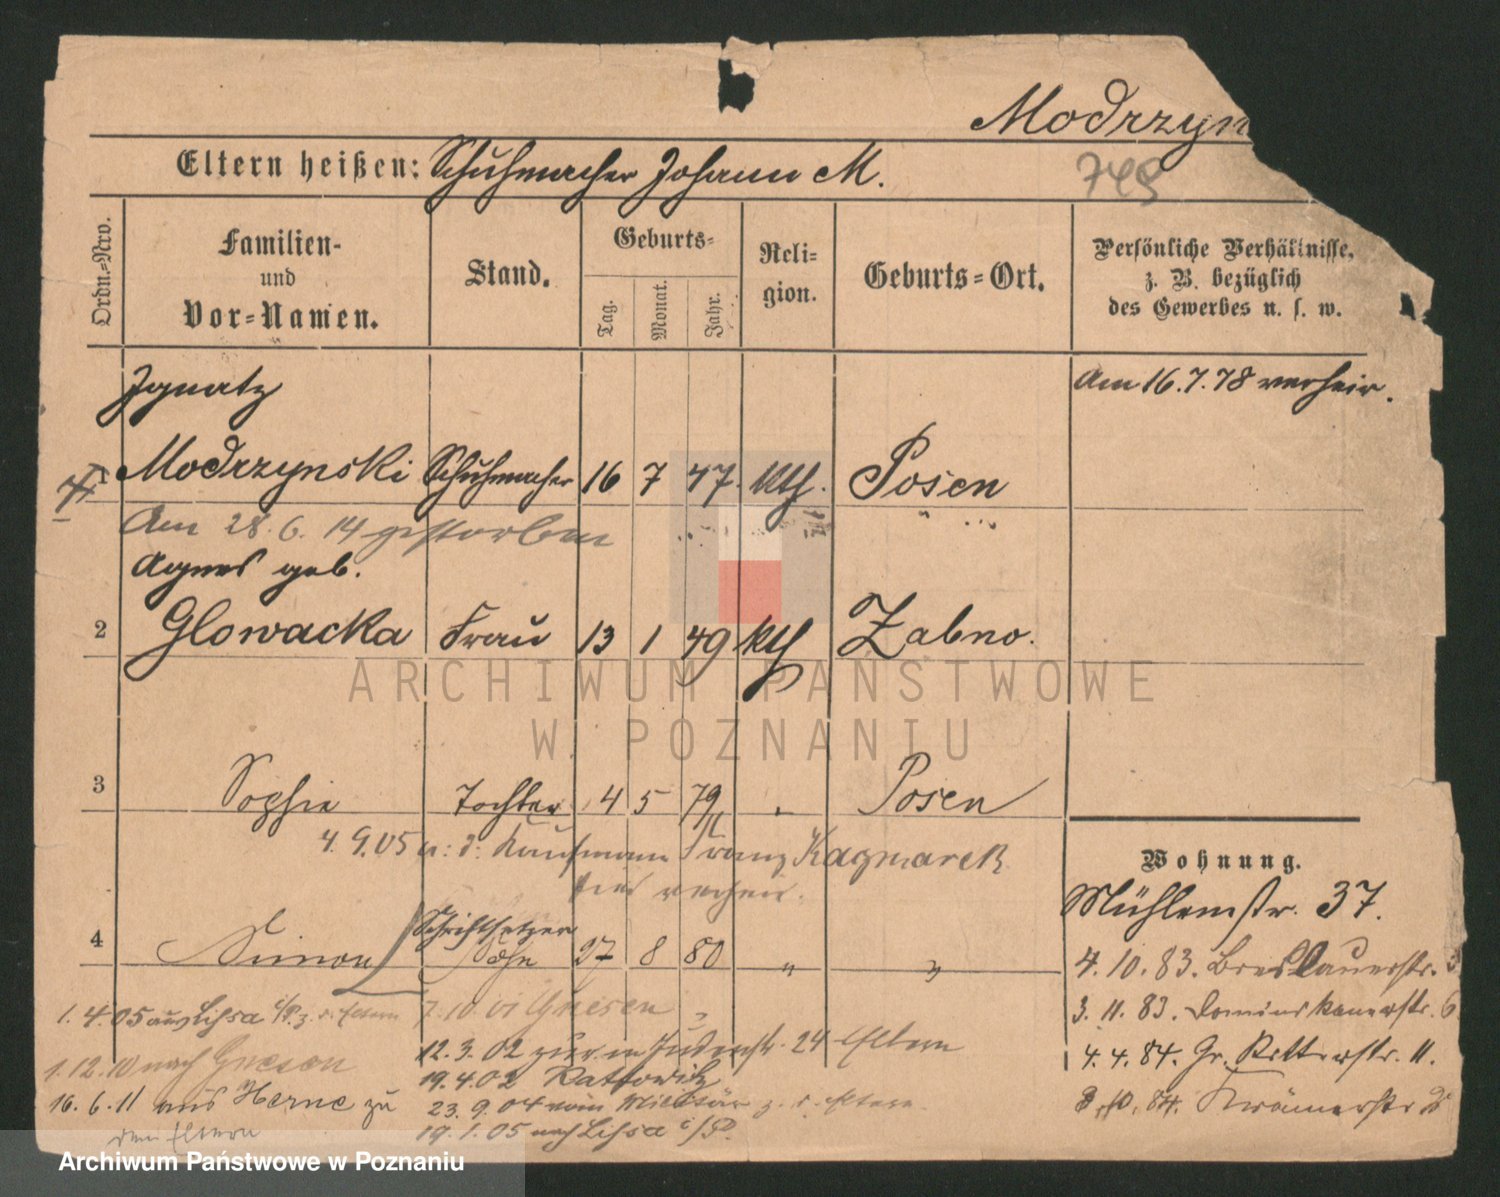 Modrzyn
Eltern heißen: Schuhmacher Johann M.
748
Ordn.=Nro.
Familien-
und
Vor=Namen.
Stand.
Geburts=
Tag.
Monat.
Jahr.
Reli=
gion.
Geburts=Ort.
Persönliche Verhältnisse,
z. B. bezüglich
des Gewerbes u. s. w.
Ignatz
Am 16.7.78 verheir.
1 Modrzynski Schuhmacher 16 7 47. kth. Posen
Am 28.6.14 gestorben
Agnes geb.
2 Glowacka Frau 13 1 49 kth Zabno.
3 Sophie Tochter 4 5 79 " Posen
4.9.05 a: d: Kaufmann Franz Kaczmarek
hier verheir.
Schriftsetzer
4 Simon Sohn 27 8 80 " "
Wohnung.
Mühlenstr. 37.
4.10.83. Breslauerstr.
3.11.83. Dominikanerstr. 6
4.4.84. Gr. Ritterstr. 11.
84. Krämerstr
1.4.05 aus Lissa i/P. z. d. Eltern
7.10.01 Gnesen
12.3.02 zur. in Judenstr. 24 Eltern
1.12.10 nach Gnesen
19.4.02 Kattowitz
16.6.11 aus Herne zu
den Eltern
23.9.04 vom Militär z. d. Eltern
19.1.05 nach Lissa i/P.
ARCHIWUM PAŃSTWOWE
W POZNANIU
Archiwum Państwowe w Poznaniu